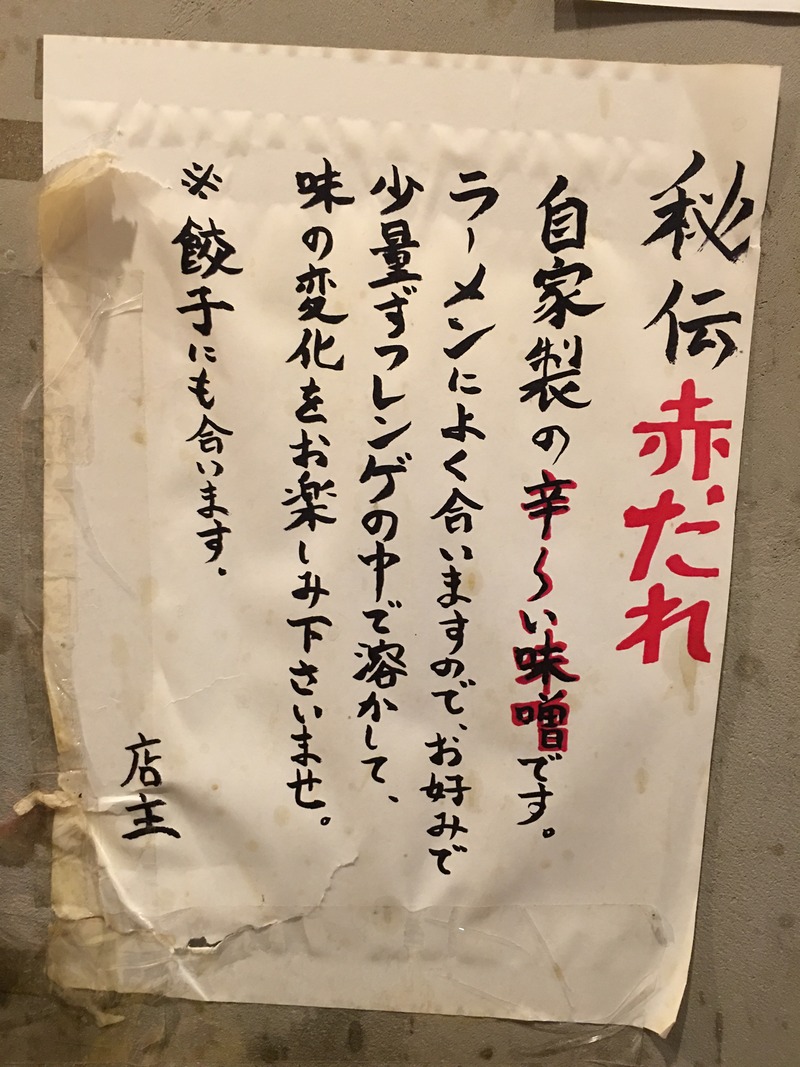 秘伝赤だれ
自家製の辛〜い味噌です。
ラーメンによく合いますので、お好みで
少量ずつレンゲの中で溶かして、
味の変化をお楽しみ下さいませ。
※餃子にも合います。
店主